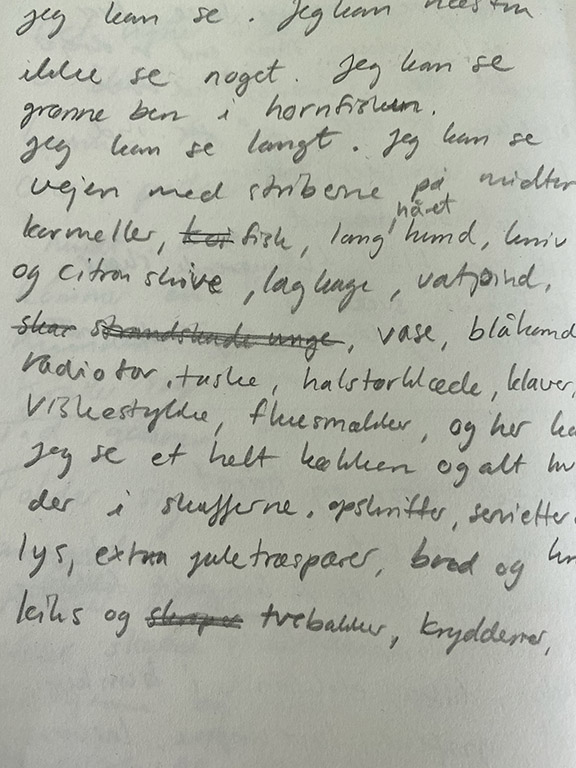 jeg kan se. Jeg kan næsten
ikke se noget. Jeg kan se
grønne ben i hornfisken.
Jeg kan se langt. Jeg kan se
vejen med striberne på midten
håret
karmeller, fisk, lang hund, kniv
og citron skive, lagkage, vatpind,
skar strandskade unge, vase, blåhånd
radiator, taske, halstørklæde, klaver,
Viskestykke, fluesmækker, og her
Jeg se et helt køkken og alt
der i skufferne. opskrifter, servietter
lys, extra juletræspærer, brød og
kiks og tvebakker, krydderier,